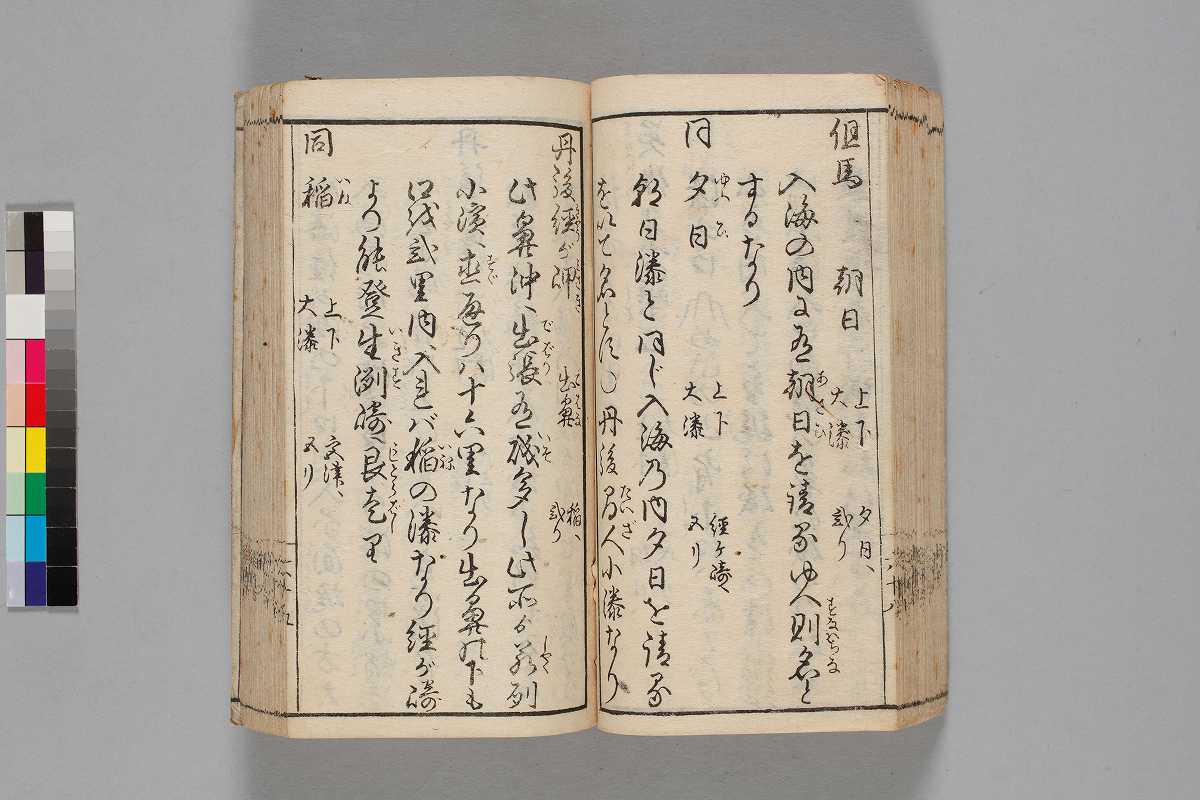 但馬 朝日 上下大湊 夕日へ弐り
入海の内にて朝日を請るゆへ則名と
するなり
同 夕日 上下大湊 経ケ崎へ五り
朝日湊と同じ入海乃内夕日を請る
を以て名とす○丹後 間人小湊なり
丹後経が岬 出鼻 稲へ弐り
此鼻沖へ出張て磯多し此所より若列
小濱へ直通り八十六里なり出鼻の下も
口弐里内へ入れバ稲の湊なり経が崎
より能登生渕崎へ艮
同 稲 上下大湊 宮津へ五り